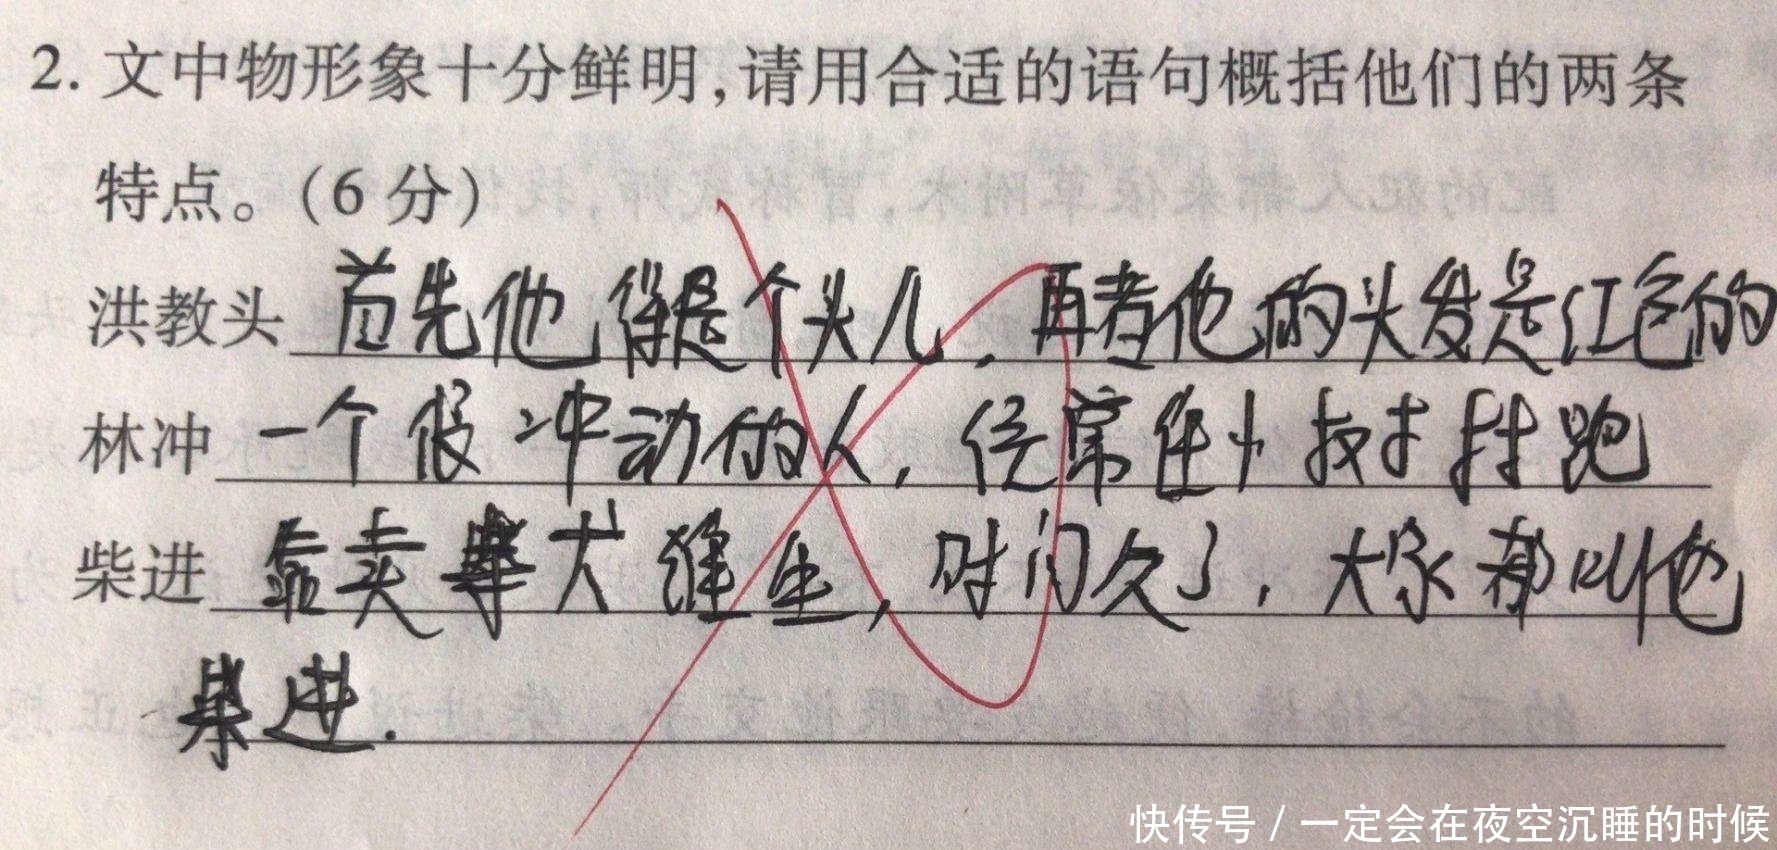 2. 文中物形象十分鲜明,请用合适的语句概括他们的两条
特点。(6 分)
洪教头 首先他得是个头儿,再者他的头发是红色的
林冲 一个很冲动的人,经常往小树林跑
柴进 靠卖拳犬维生,时间久了,大家都叫他
柴进.
快传号 / 一定会在夜空沉睡的时候